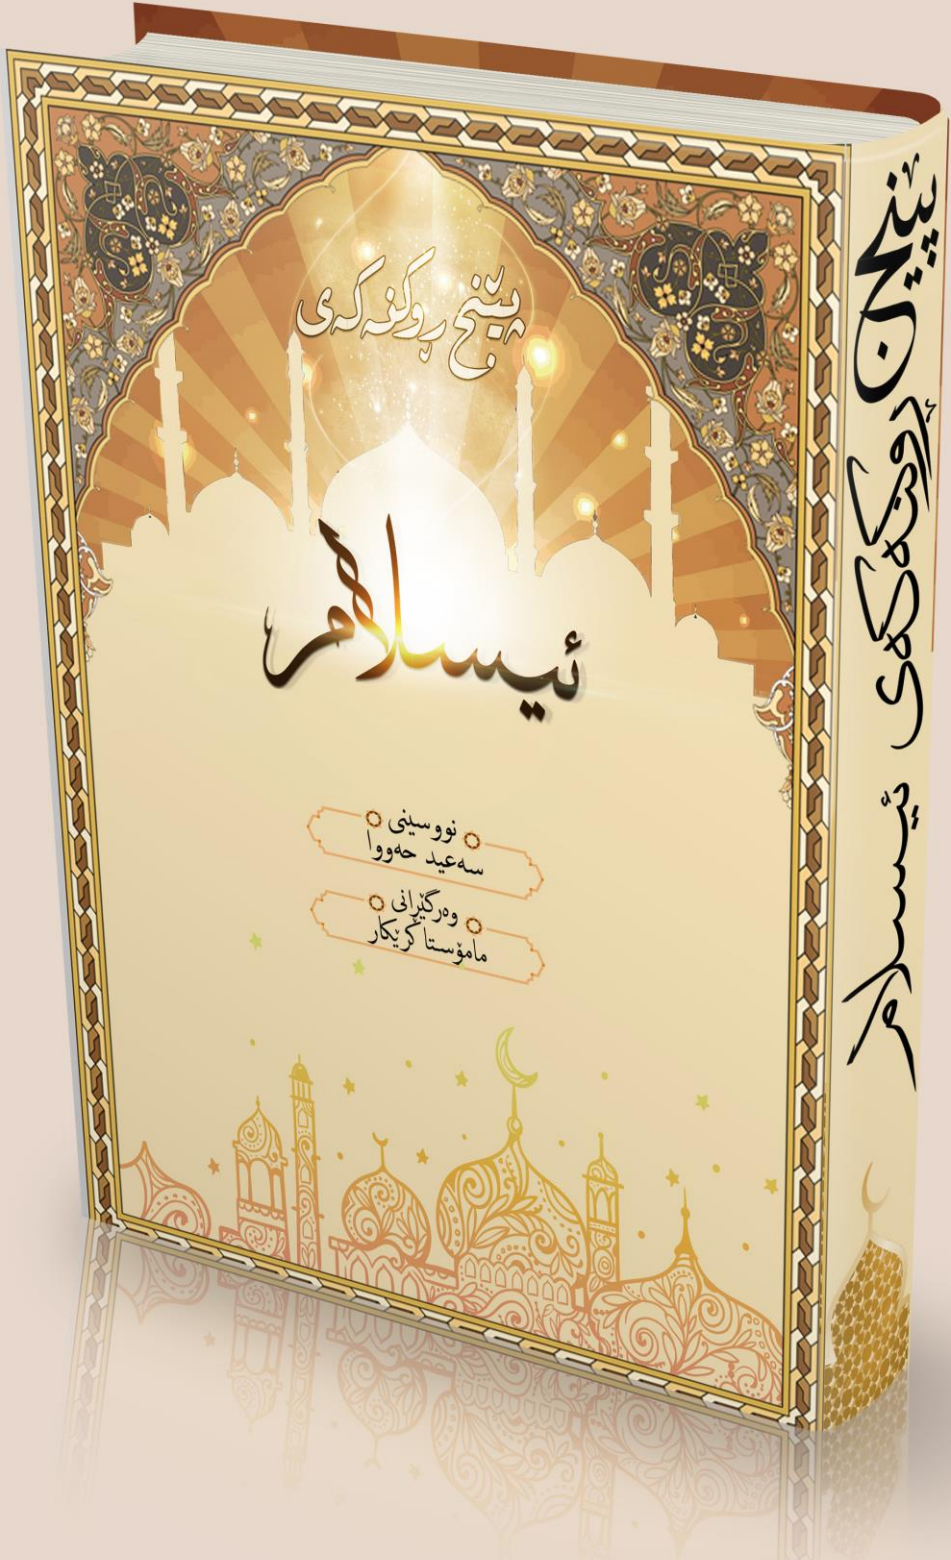 پێنج ڕوکنەکەی
ئیسلام
نووسینی
سەعید حەووا
وەرگێڕانی
مامۆستا کرێکار
پێنج ڕوکنەکەی ئیسلام